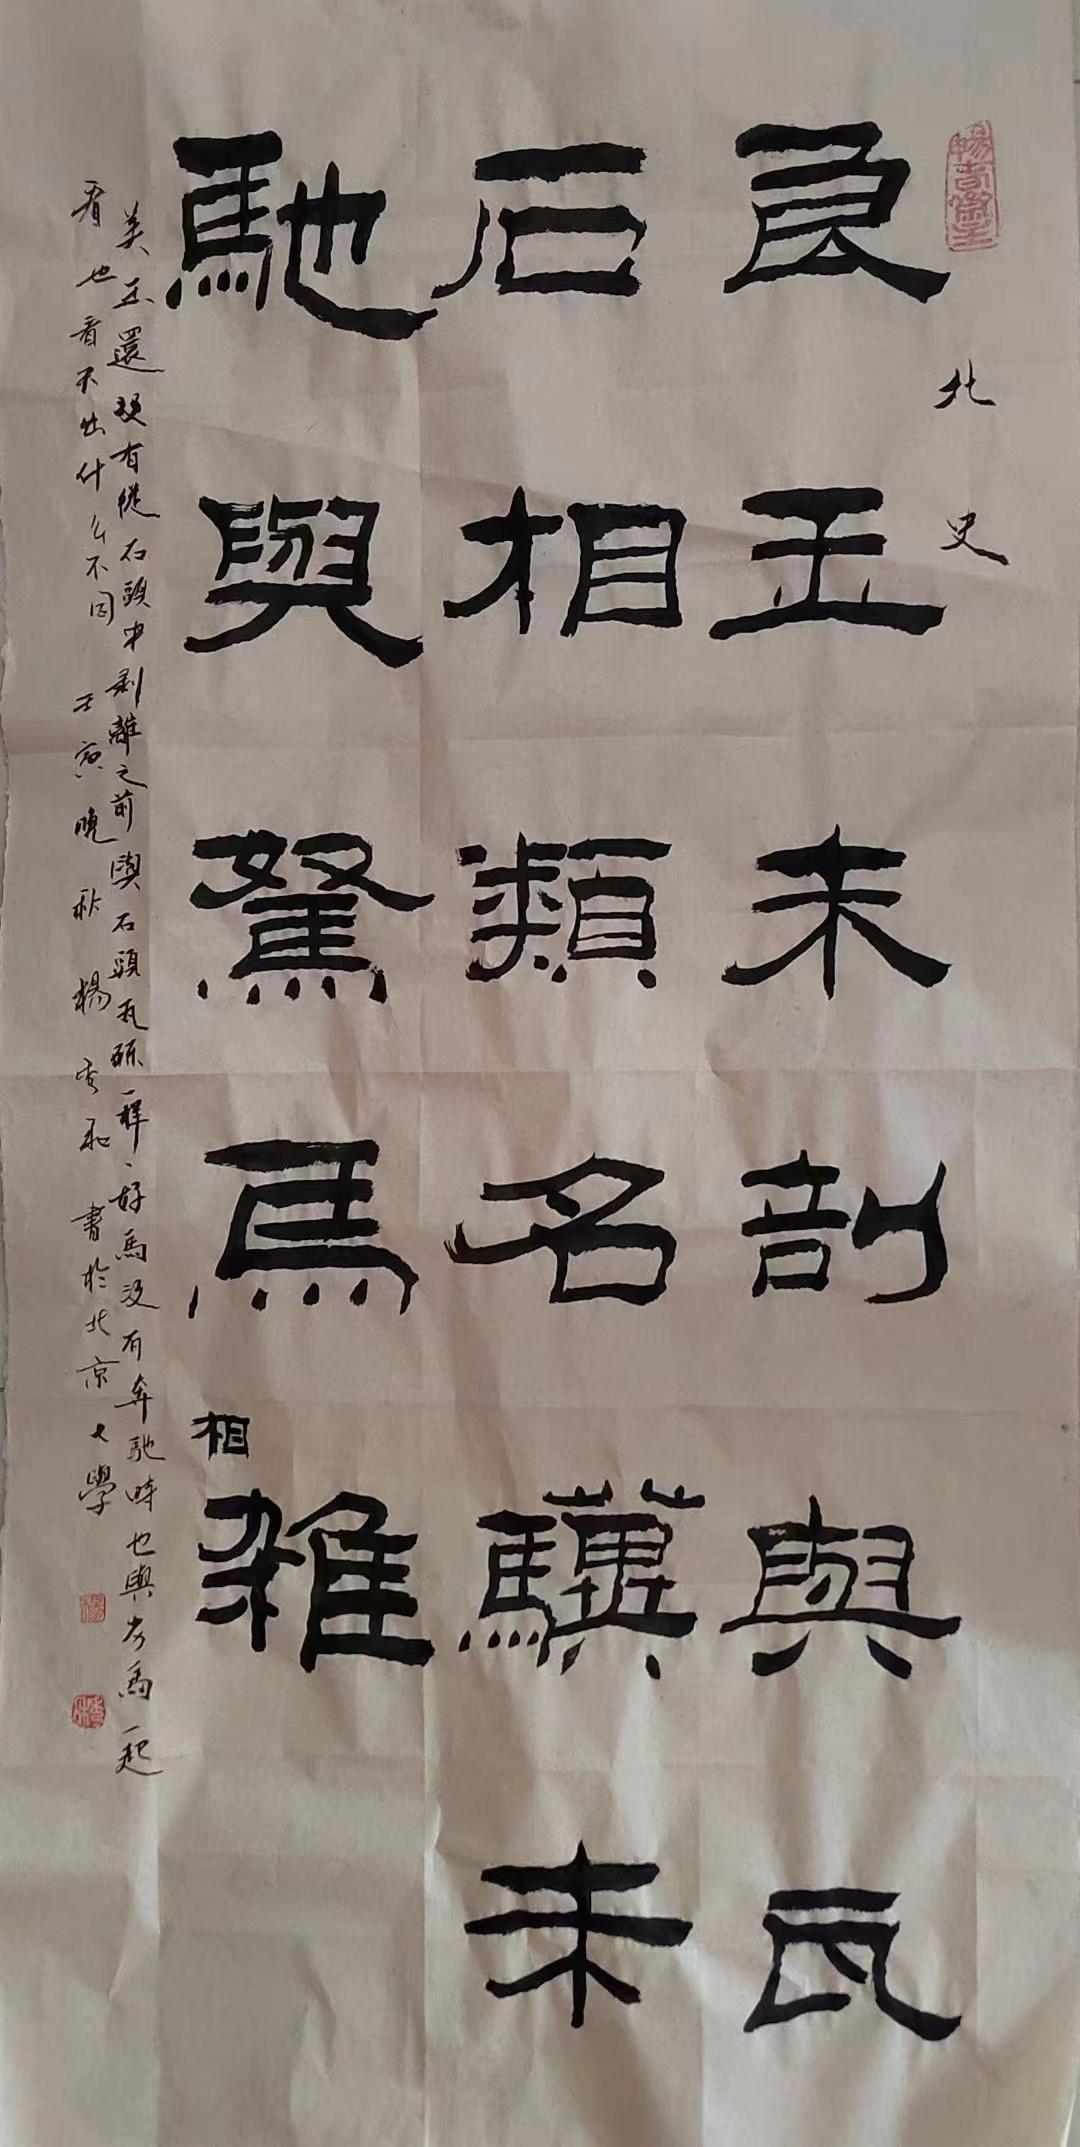 北史
良玉未剖與瓦
石相類名驥未
馳與駑馬相雜
美玉還没有從石頭中剥離之前與石頭瓦砾一样、好馬没有奔馳時也與劣馬一起
看也看不出什么不同 壬寅晚秋 楊秀和 書於北京大學